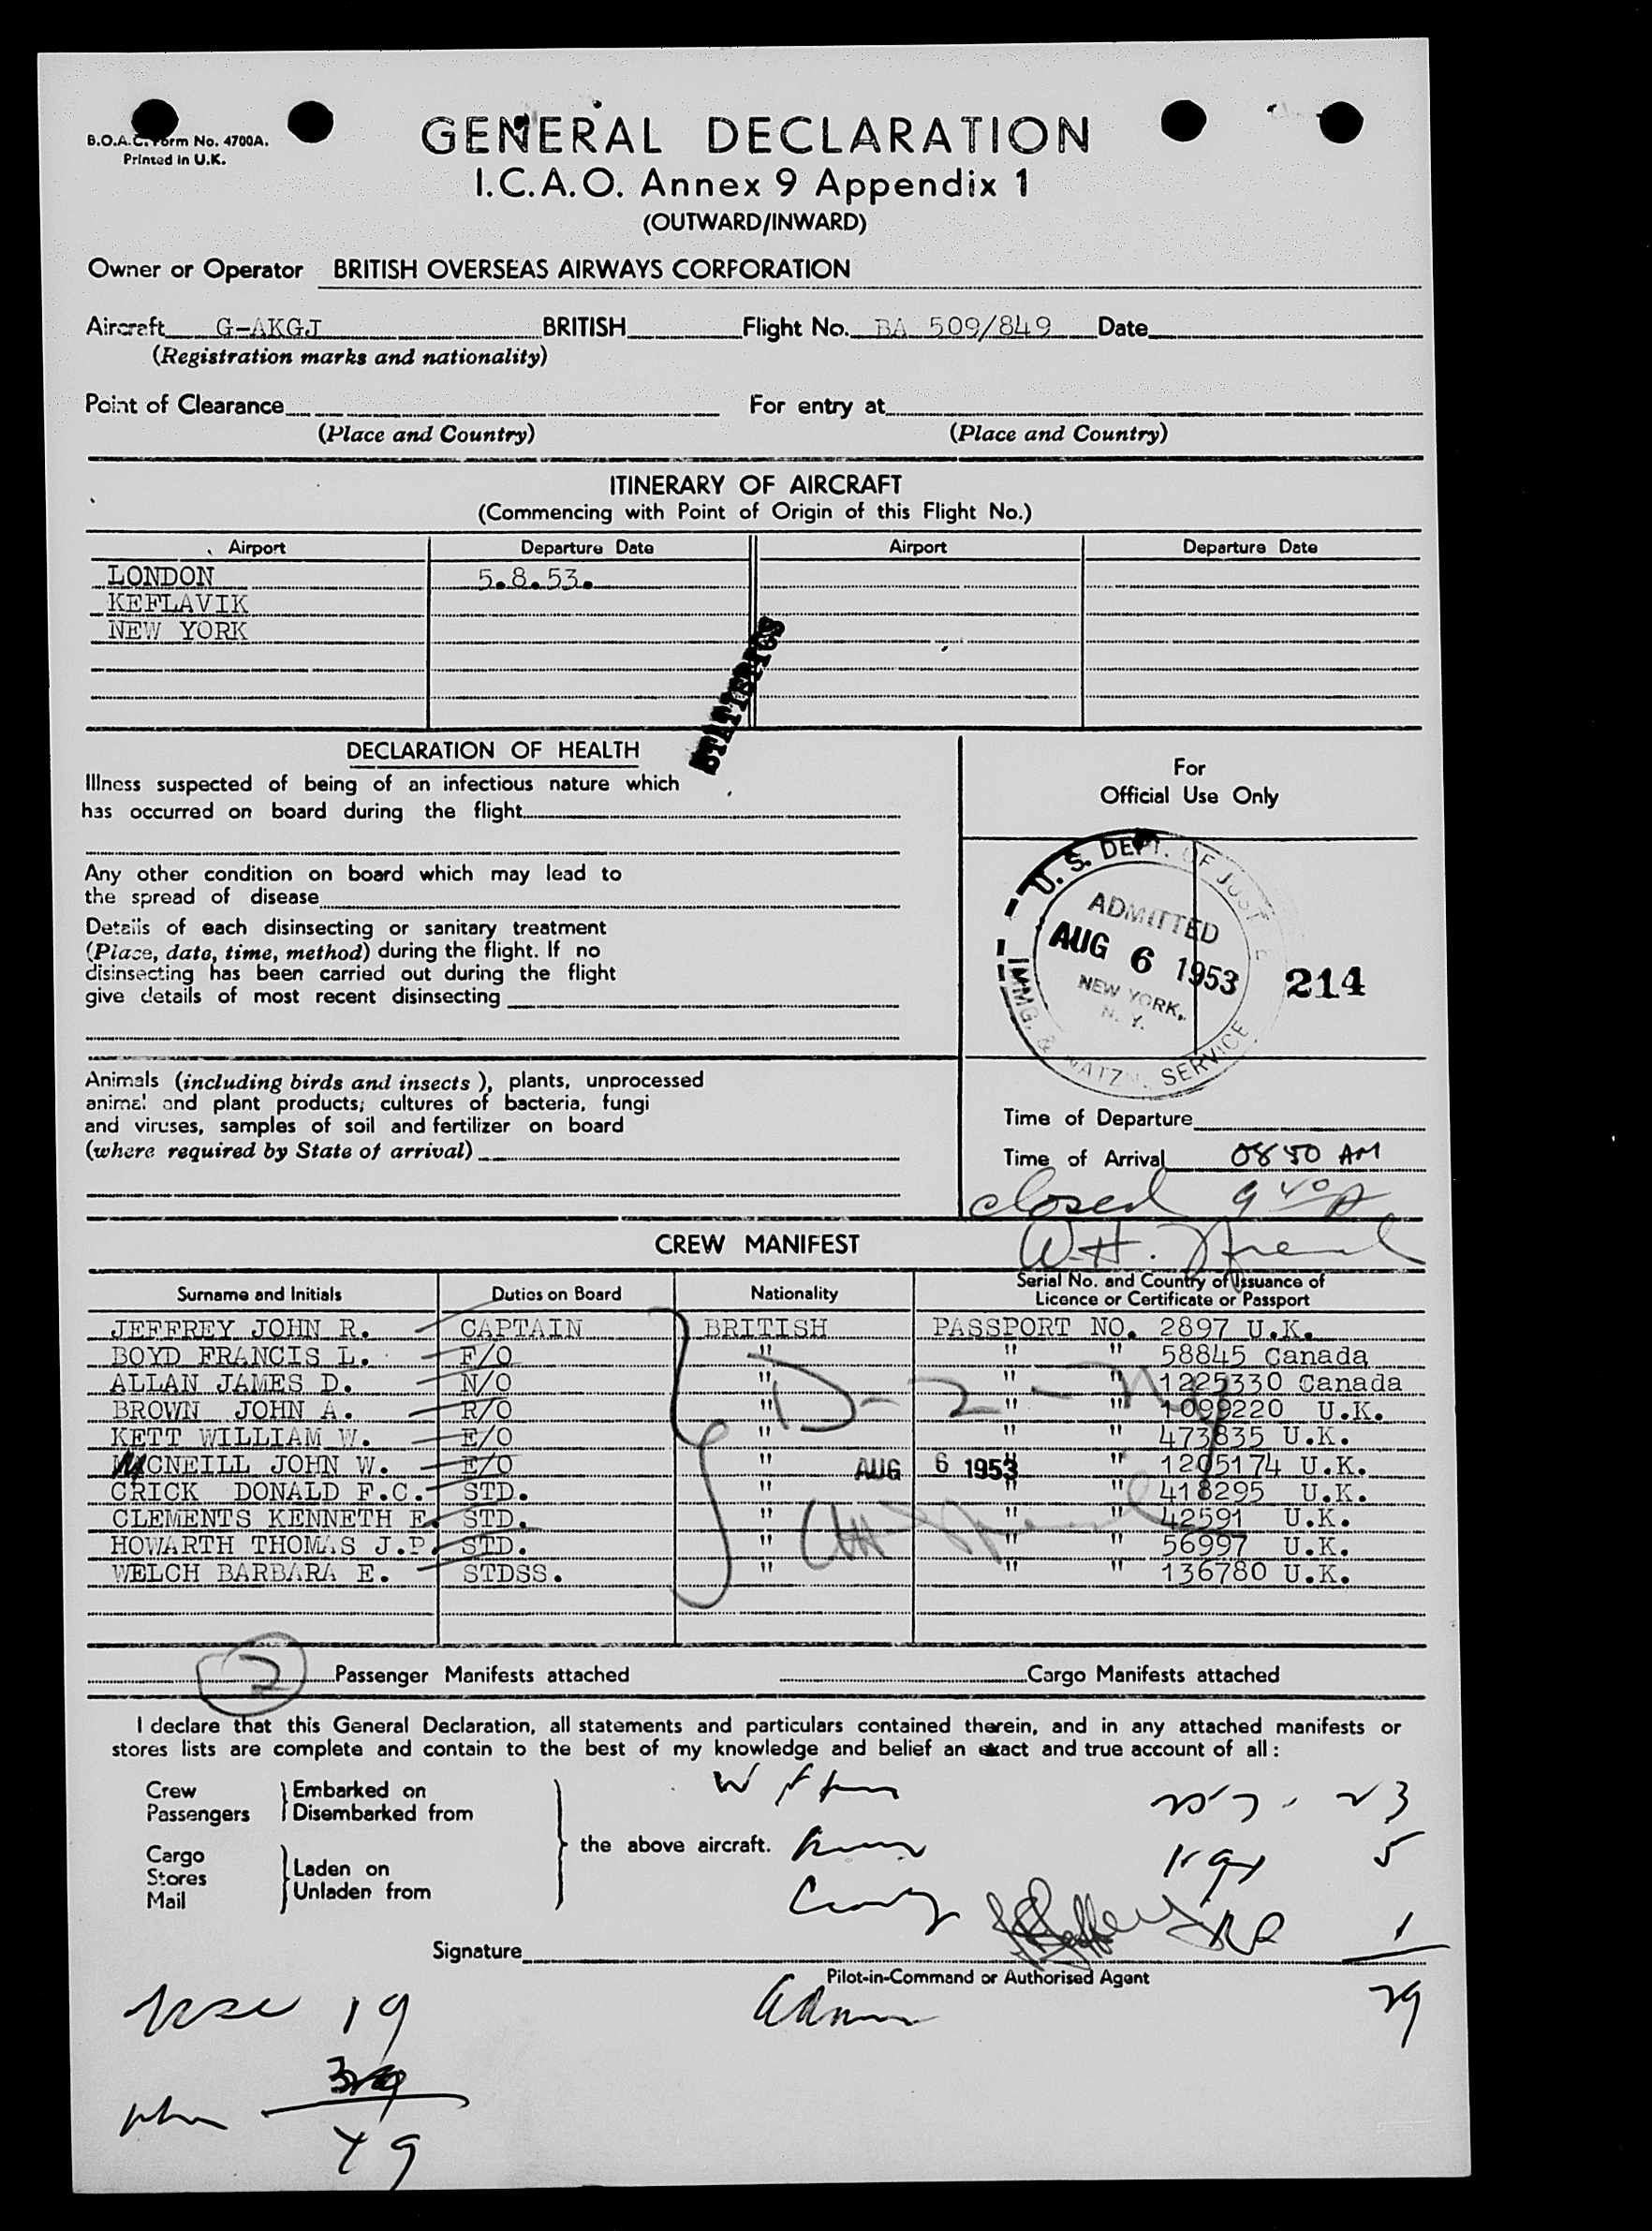 B.O.A.C. Form No. 4700A.
Printed in U.K.
GENERAL DECLARATION
I.C.A.O. Annex 9 Appendix 1
(OUTWARD/INWARD)
Owner or Operator BRITISH OVERSEAS AIRWAYS CORPORATION
Aircraft G-AKGJ BRITISH Flight No. BA 509/849 Date
(Registration marks and nationality)
Point of Clearance For entry at
(Place and Country) (Place and Country)
ITINERARY OF AIRCRAFT
(Commencing with Point of Origin of this Flight No.)
Airport Departure Date Airport Departure Date
LONDON 5.8.53.
KEFLAVIK
NEW YORK
DECLARATION OF HEALTH
Illness suspected of being of an infectious nature which
has occurred on board during the flight
Any other condition on board which may lead to
the spread of disease
Details of each disinsecting or sanitary treatment
(Place, date, time, method) during the flight. If no
disinsecting has been carried out during the flight
give details of most recent disinsecting
Animals (including birds and insects), plants, unprocessed
animal and plant products; cultures of bacteria, fungi
and viruses, samples of soil and fertilizer on board
(where required by State of arrival)
For
Official Use Only
U.S. DEPT. OF JUSTICE
ADMITTED
AUG 6 1953
NEW YORK,
N. Y.
IMMG. & NATZN. SERVICE
214
Time of Departure
Time of Arrival 0850 AM
closed 9 40 A
CREW MANIFEST
Surname and Initials Duties on Board Nationality Serial No. and Country of Issuance of
Licence or Certificate or Passport
JEFFREY JOHN R. CAPTAIN BRITISH PASSPORT NO. 2897 U.K.
BOYD FRANCIS L. F/O " " " 58845 Canada
ALLAN JAMES D. N/O " " " 1225330 Canada
BROWN JOHN A. R/O " " " 1099220 U.K.
KETT WILLIAM W. E/O " " " 473835 U.K.
MACNEILL JOHN W. E/O " " " 1205174 U.K.
CRICK DONALD F.C. STD. " " " 418295 U.K.
CLEMENTS KENNETH E. STD. " " " 42591 U.K.
HOWARTH THOMAS J.P. STD. " " " 56997 U.K.
WELCH BARBARA E. STDSS. " " " 136780 U.K.
D-2-
AUG 6 1953
2 Passenger Manifests attached Cargo Manifests attached
I declare that this General Declaration, all statements and particulars contained therein, and in any attached manifests or
stores lists are complete and contain to the best of my knowledge and belief an exact and true account of all :
Crew Embarked on
Passengers Disembarked from
the above aircraft.
Cargo
Stores Laden on
Mail Unladen from
23
5
1
29
Signature
Pilot-in-Command or Authorised Agent
19